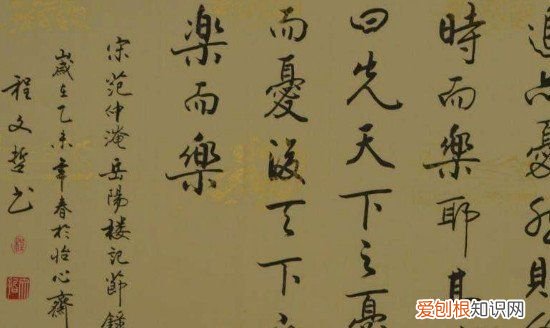 退亦憂
時而樂耶其
曰先天下之憂
而憂後天下之
楽而樂
宋范仲淹岳陽楼記節錄
歲在乙未年春於怡心齋
程文哲书
爱刨根知识网